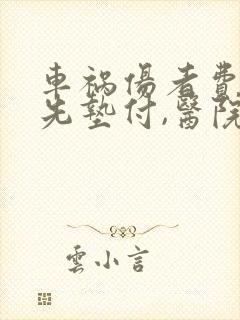 車祸傷者費
先墊付,醫院
雲小言